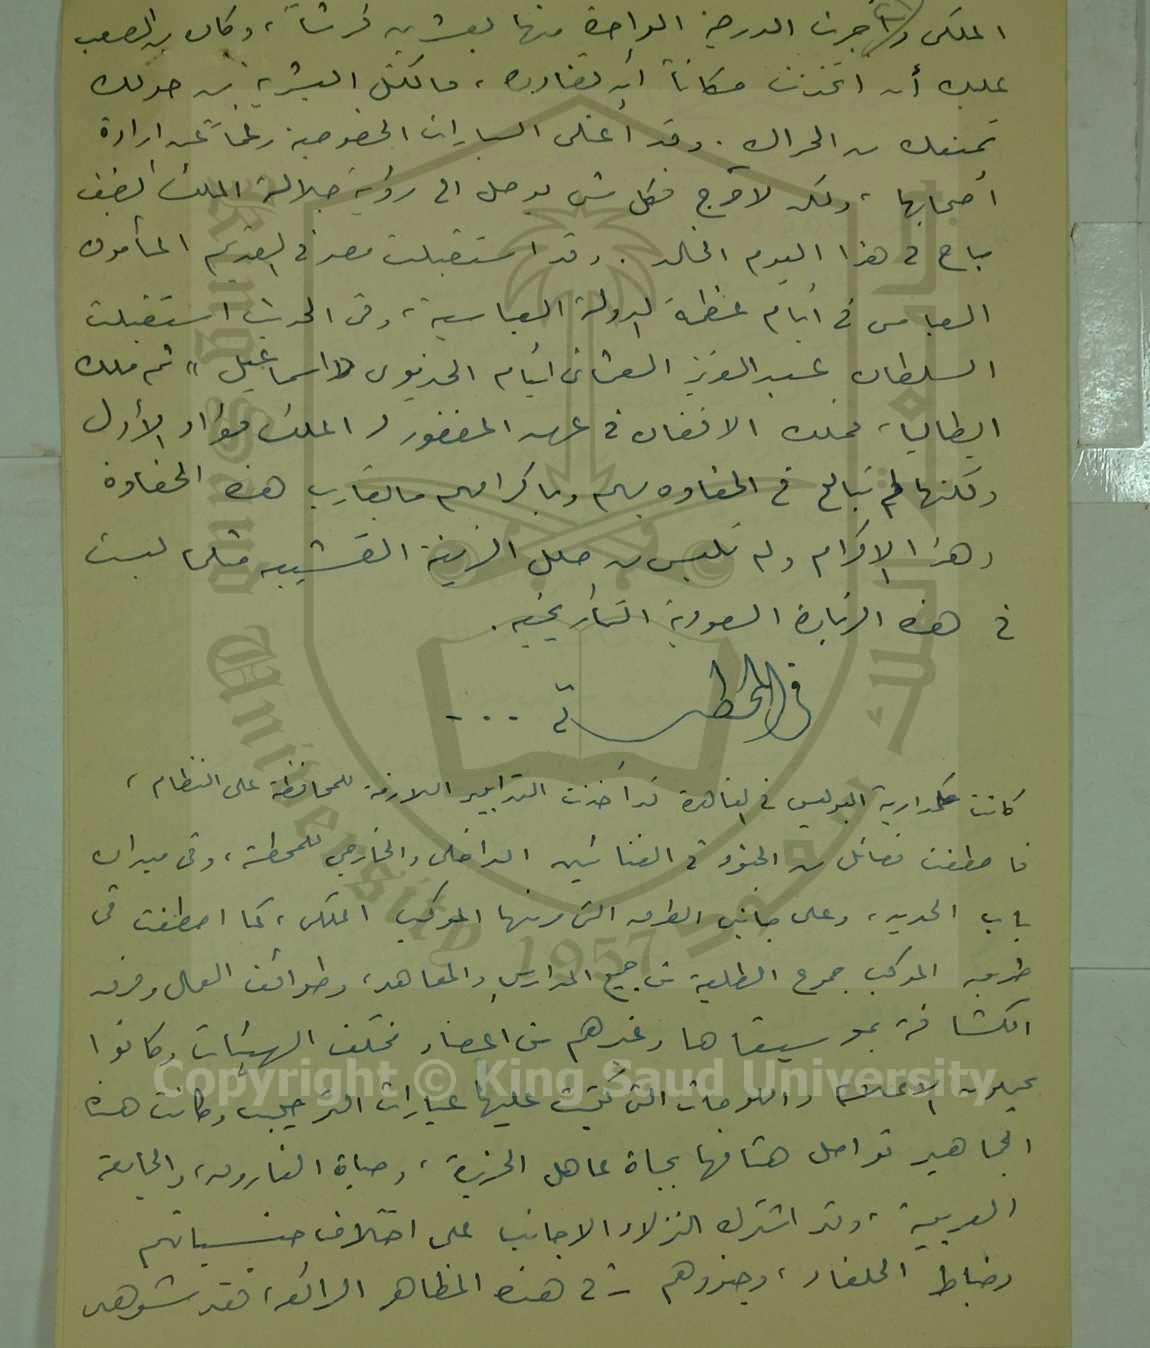 الملكى وأجرت الدرجة الواحدة منها بعشرين قرشاً، وكان من الصعب
عليك أن اتخذت مكاناً أن تغادره، فالكتل البشرية من حولك
تمنعك من الحراك. وقد أعتلى السيارات الخصوصية رغماً عن ارادة
أصحابها، ولكن لا حرج فكل شئ يوصل الى رؤية جلالة الملك الضيف
مباح فى هذا اليوم الخالد. وقد استقبلت مصر فى القديم المأمون
العباسى فى أيام عظمة الدولة العباسية، وفى الحديث استقبلت
السلطان عبد العزيز العثمانى أيام الخديوى «اسماعيل» ثم ملك
ايطاليا، فملك الافغان فى عهد المغفور له الملك فؤاد الأول
ولكنها لم تبالغ فى الحفاوه بهم وباكرامهم ما يقارب هذه الحفاوة
وهذا الاكرام ولم تلبس من حلل الزينة القشيبه مثلما لبست
فى هذه الزيارة السعودية التاريخيه.
فى المحطة ...
كانت حكمدارية البوليس فى القاهرة قد أخذت التدابير اللازمة للمحافظة على النظام،
فاصطفت فصائل من الجنود فى الفنائين الداخلى والخارجى للمحطة، وفى ميدان
باب الحديد، وعلى جانبى الطرق التى مر منها الموكب الملكى، كما اصطفت فى
طريق الموكب جموع الطلبة من جميع المدارس والمعاهد، وطوائف العمال وفرق
الكشافة بموسيقاها وغيرهم من اعضاء مختلف الهيئات وكانوا
يحملون الاعلام واللوحات التى كتبت عليها عبارات الترحيب وكانت هذه
الجماهير تواصل هتافها بحياة عاهل الجزيرة، وحياة الفاروق، والجامعة
العربية، وقد اشترك النزلاء الاجانب على اختلاف جنسياتهم
وضباط الحلفاء، وجنودهم فى هذه المظاهر الرائعة، فقد شوهد
King Saud University
1957
جامعة الملك سعود
Copyright © King Saud University